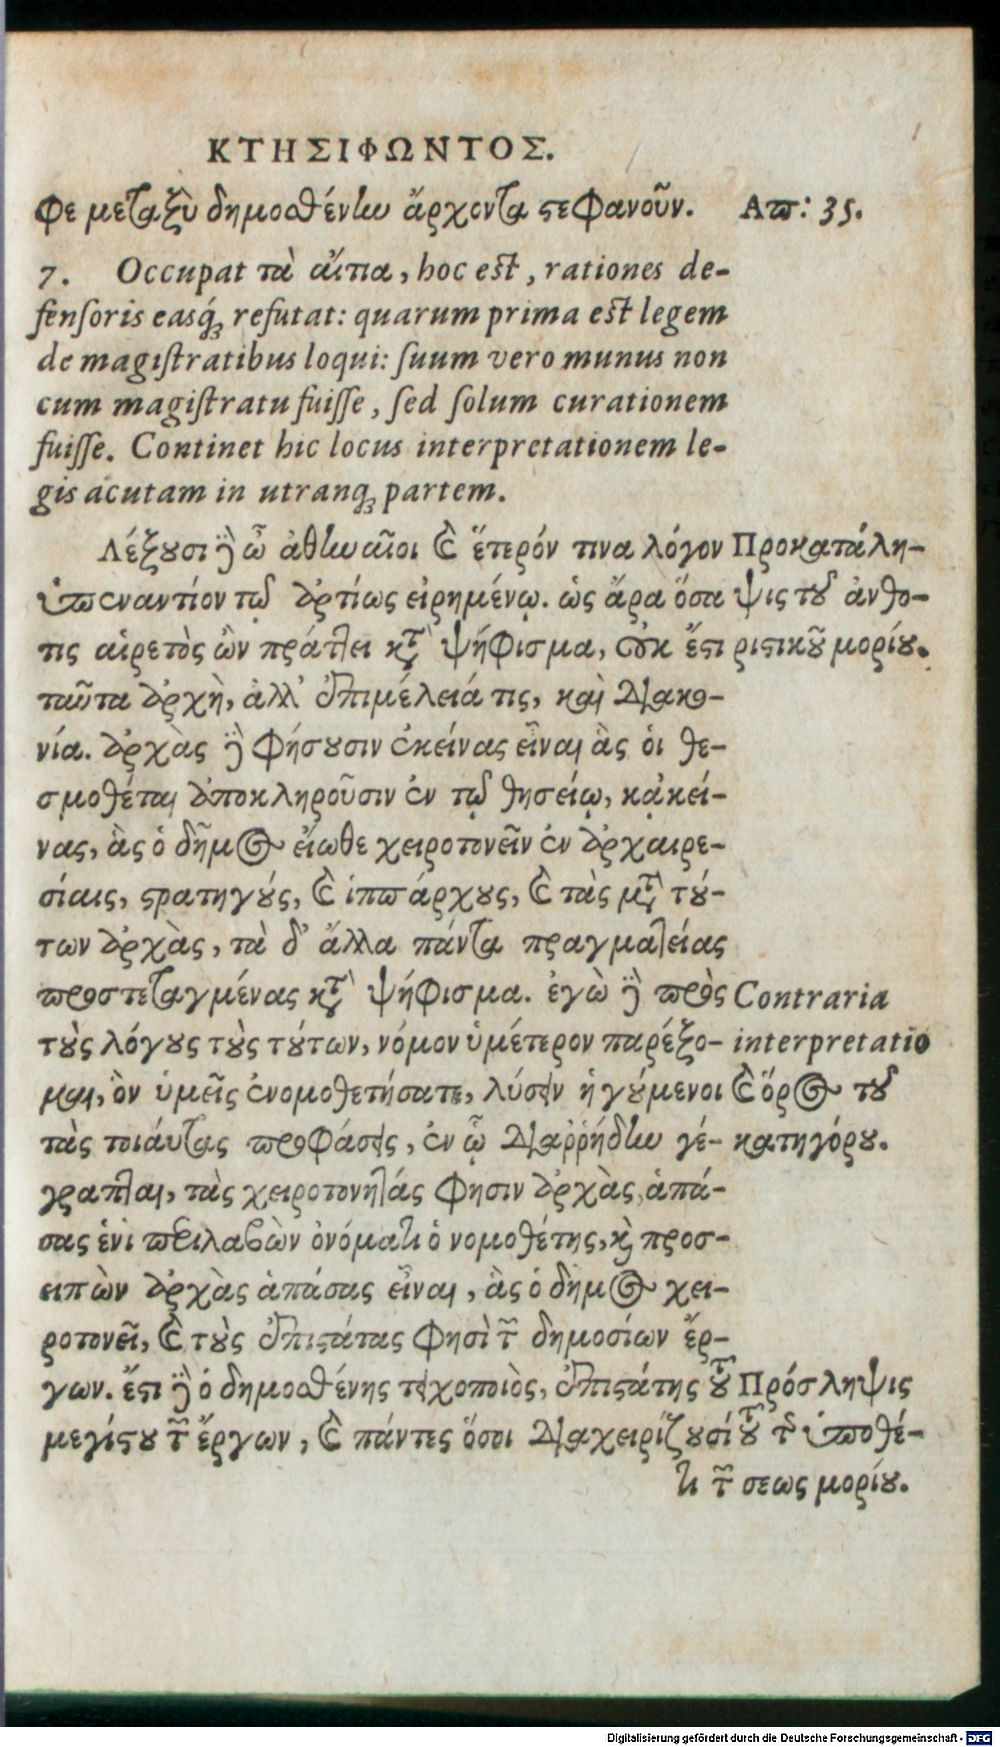 ΚΤΗΣΙΦΩΝΤΟΣ.
φε μεταξὺ δημοσθένην ἄρχοντα στεφανοῦν. Απ: 35.
7. Occupat τὰ αἴτια, hoc est, rationes de-
fensoris easq́; refutat: quarum prima est legem
de magistratibus loqui: suum vero munus non
cum magistratu fuisse, sed solum curationem
fuisse. Continet hic locus interpretationem le-
gis acutam in utranq; partem.
Λέξουσι γὰρ ὦ ἀθηναῖοι καὶ ἕτερόν τινα λόγον
ὑπεναντίον τῷ ἀρτίως εἰρημένῳ. ὡς ἄρα ὅσα
τις αἱρετὸς ὢν πράττει κτ̀ ψήφισμα, οὐκ ἔστι
ταῦτα ἀρχὴ, ἀλλ' ἐπιμέλειά τις, καὶ διακο-
νία. ἀρχὰς γὰρ φήσουσιν ἐκείνας εἶναι ἃς ὁι θε-
σμοθέται ἀποκληροῦσιν ἐν τῷ θησείῳ, κᾀκεί-
νας, ἃς ὁ δῆμος εἴωθε χειροτονεῖν ἐν ἀρχαιρε-
σίαις, στρατηγούς, καὶ ἱππάρχους, καὶ τὰς μτ̀ τού-
των ἀρχὰς, τὰ δ' ἄλλα πάντα πραγματείας
προστεταγμένας κτ̀ ψήφισμα. ἐγὼ γὰρ πρὸς
τοὺς λόγους τοὺς τούτων, νόμον ὑμέτερον παρέξο-
μαι, ὃν ὑμεῖς ἐνομοθετήσατε, λύσειν ἡγούμενοι
τὰς τοιαύτας προφάσεις, ἐν ᾧ διαῤῥήδην γέ-
γραπται, τὰς χειροτονητάς φησιν ἀρχὰς, ἁπά-
σας ἑνὶ περιλαβὼν ὀνόματι ὁ νομοθέτης, κὶ προσ-
ειπὼν ἀρχὰς ἁπάσας εἶναι, ἃς ὁ δῆμος χει-
ροτονεῖ, καὶ τοὺς ἐπιστάτας φησὶ τῶν δημοσίων ἔρ-
γων. ἔστι γὰρ ὁ δημοσθένης τειχοποιὸς, ἐπιστάτης τοῦ
μεγίστου τῶν ἔργων, καὶ πάντες ὅσοι διαχειρίζουσί
τι τῶν
Προκατάλη-
ψις τοῦ ἀνθο-
ριστικοῦ μορίου.
Contraria
interpretatio
καὶ ὅρος τοῦ
κατηγόρου.
Πρόσληψις
τοῦ τῆς ὑποθέ-
σεως μορίου.
Digitalisierung gefördert durch die Deutsche Forschungsgemeinschaft - DFG